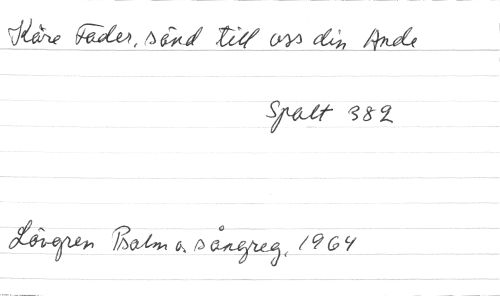 Käre Fader, sänd till oss din Ande
Spalt 382
Lövgren Psalm o. sångreg. 1964